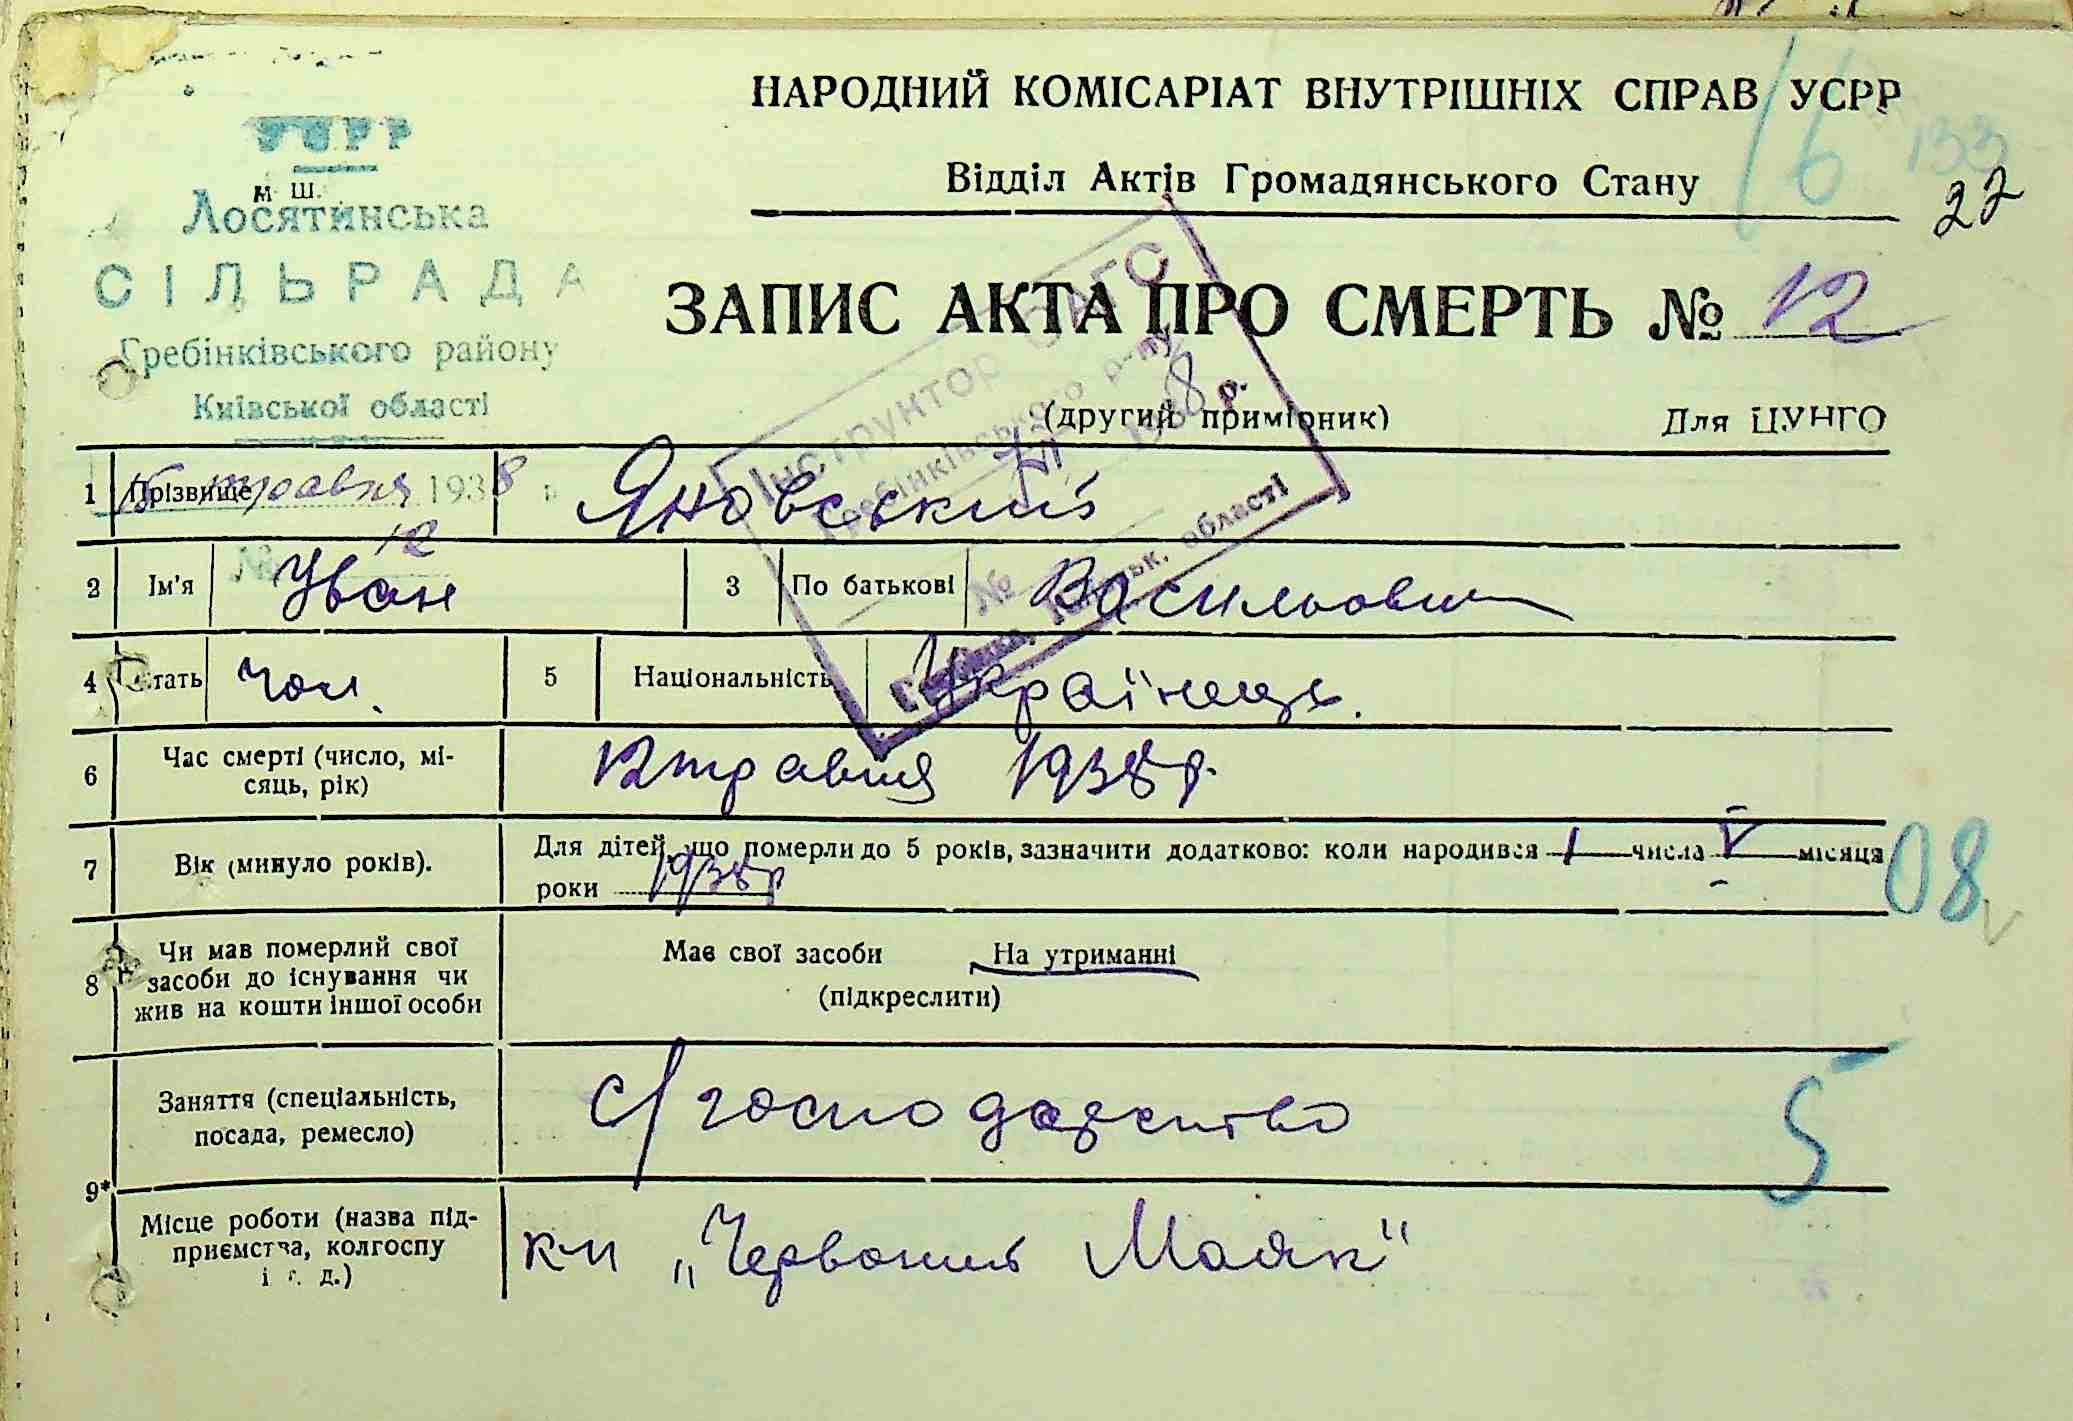 НАРОДНИЙ КОМІСАРІАТ ВНУТРІШНІХ СПРАВ УСРР
16
133
Відділ Актів Громадянського Стану
22
УСРР
м Ш.
Лосятинська
СІЛЬРАДА
Гребінківського району
Київської області
15 травня 1938
№ 12
ЗАПИС АКТА ПРО СМЕРТЬ № 12
(другий примірник) Для ЦУНГО
Інструктор ОАГС
Гребінківського р-ну
1938 р.
№
Київськ. області
1 Прізвище Яновський
2 Ім'я Іван 3 По батькові Васильович
4 Стать Чол. 5 Національність Українець.
6 Час смерті (число, мі-
сяць, рік) 12 травня 1938 р.
7 Вік (минуло років). Для дітей, що померли до 5 років, зазначити додатково: коли народився 1 числа V місяця
роки 1938 р
08
8 Чи мав померлий свої
засоби до існування чи
жив на кошти іншої особи
Має свої засоби На утриманні
(підкреслити)
9*
Заняття (спеціальність,
посада, ремесло) с/господарство
5
Місце роботи (назва під-
приємства, колгоспу
і т. д.)
к-п „Червоний Маяк"